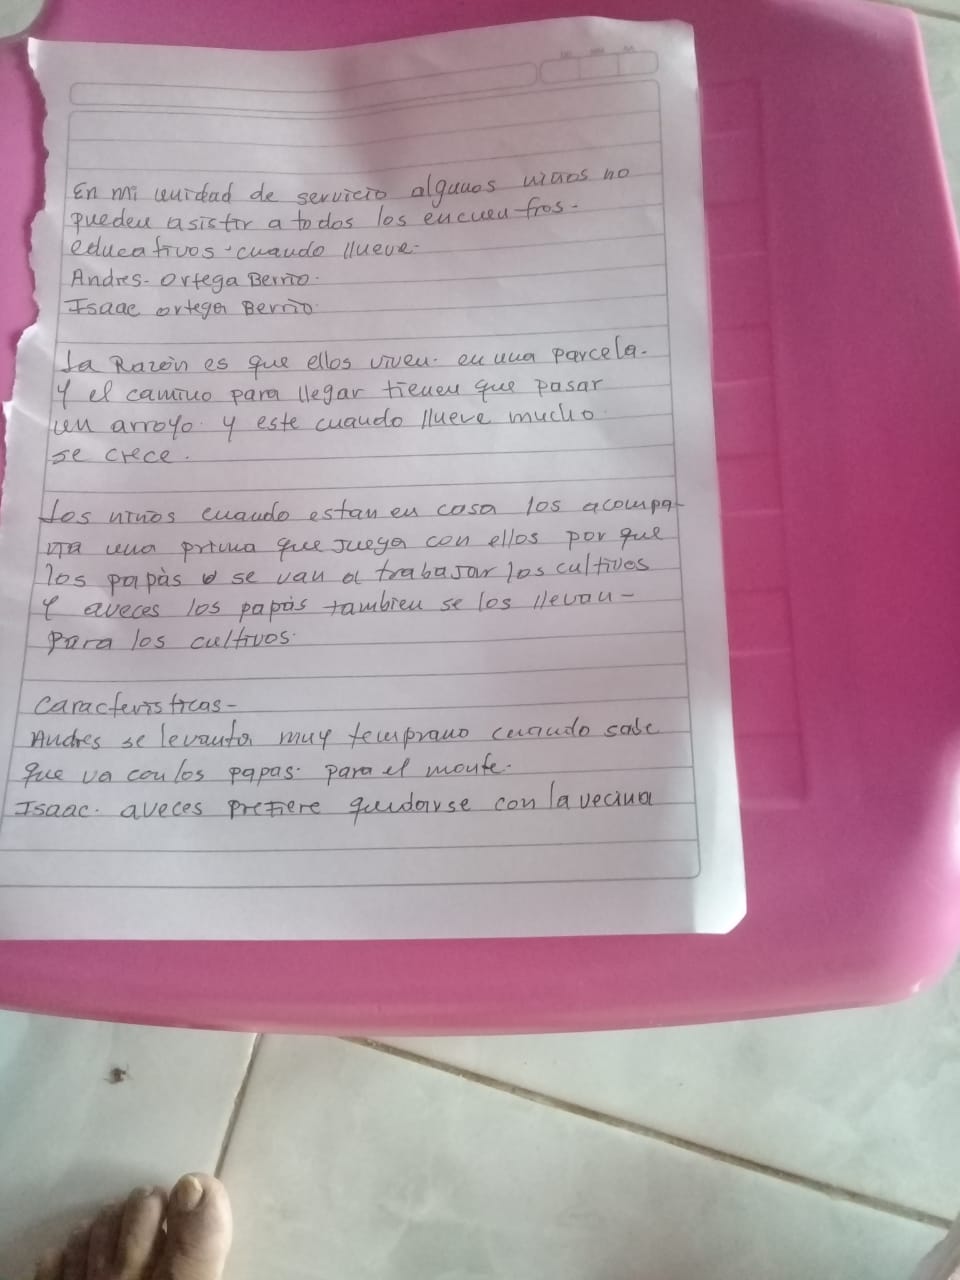 En mi unidad de servicio algunos niños no
pueden asistir a todos los encuentros-
educativos · cuando llueve-
Andres- Ortega Berrio.
Isaac ortega Berrio.
La Razón es que ellos viven. en una parcela.
y el camino para llegar tienen que pasar
un arroyo. y este cuando llueve mucho.
se crece.
Los niños cuando estan en casa los acompa-
ña una prima que juega con ellos por que
los papás se van a trabajar los cultivos
y aveces los papás tambien se los llevan-
para los cultivos.
Características-
Andres se levanta muy temprano cuando sabe
que va con los papas. para el monte.
Isaac. aveces prefiere quedarse con la vecina